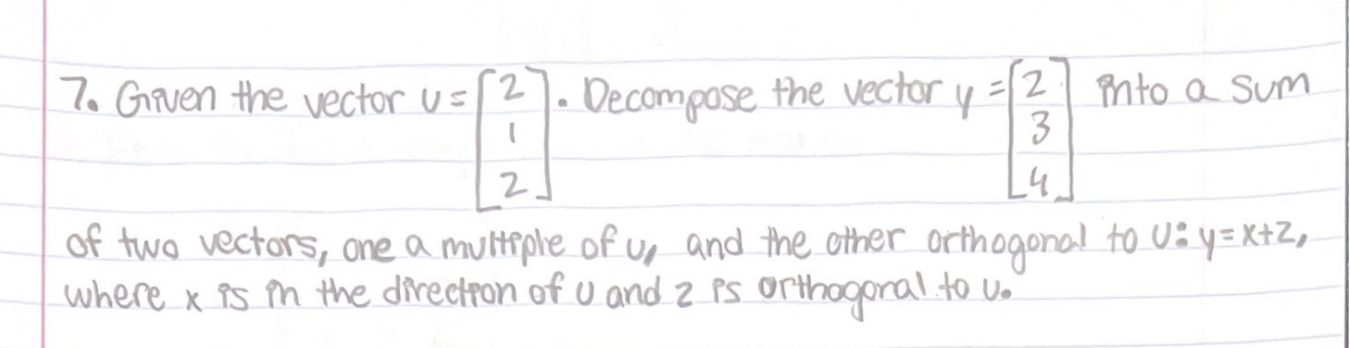 7. Given the vector u = [2 1 2]. Decompose the vector y = [2 3 4] into a sum
of two vectors, one a multiple of u, and the other orthogonal to u: y=x+z,
where x is in the direction of u and z is orthogonal to u.